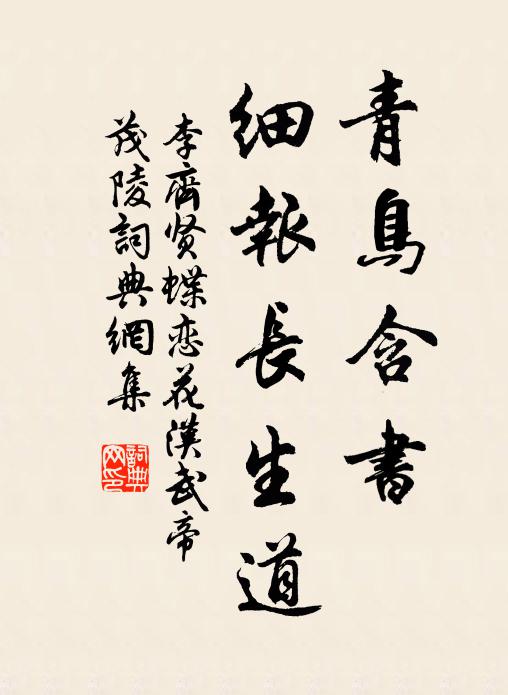 青鳥含書
細報長生道
李齊贤蝶恋花漢武帝
茂陵詞典網集
詞典
网印